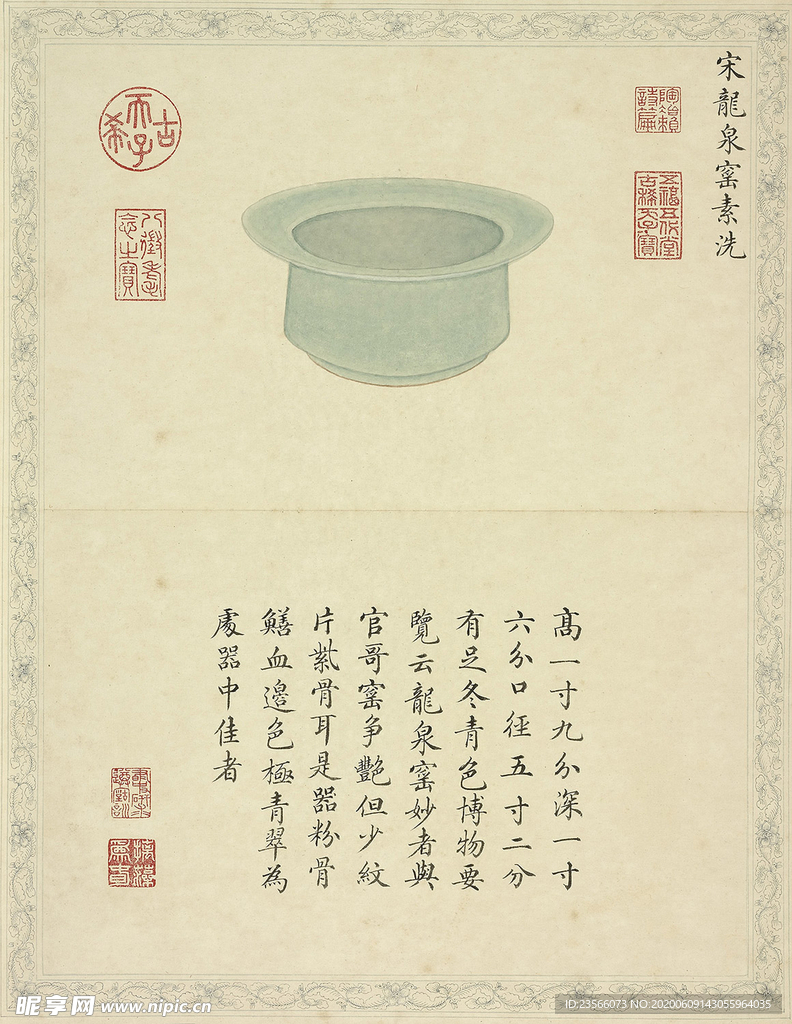 宋龍泉窰素洗
五福五代堂古稀天子寶
古希天子
八徵耄念之寶
髙一寸九分深一寸
六分口徑五寸二分
有足冬青色博物要
覽云龍泉窰妙者與
官哥窰争艷但少紋
片紫骨耳是器粉骨
鱔血邊色極青翠為
處器中佳者
昵享网 www.nipic.cn
ID:23566073 NO:20200609143055964035